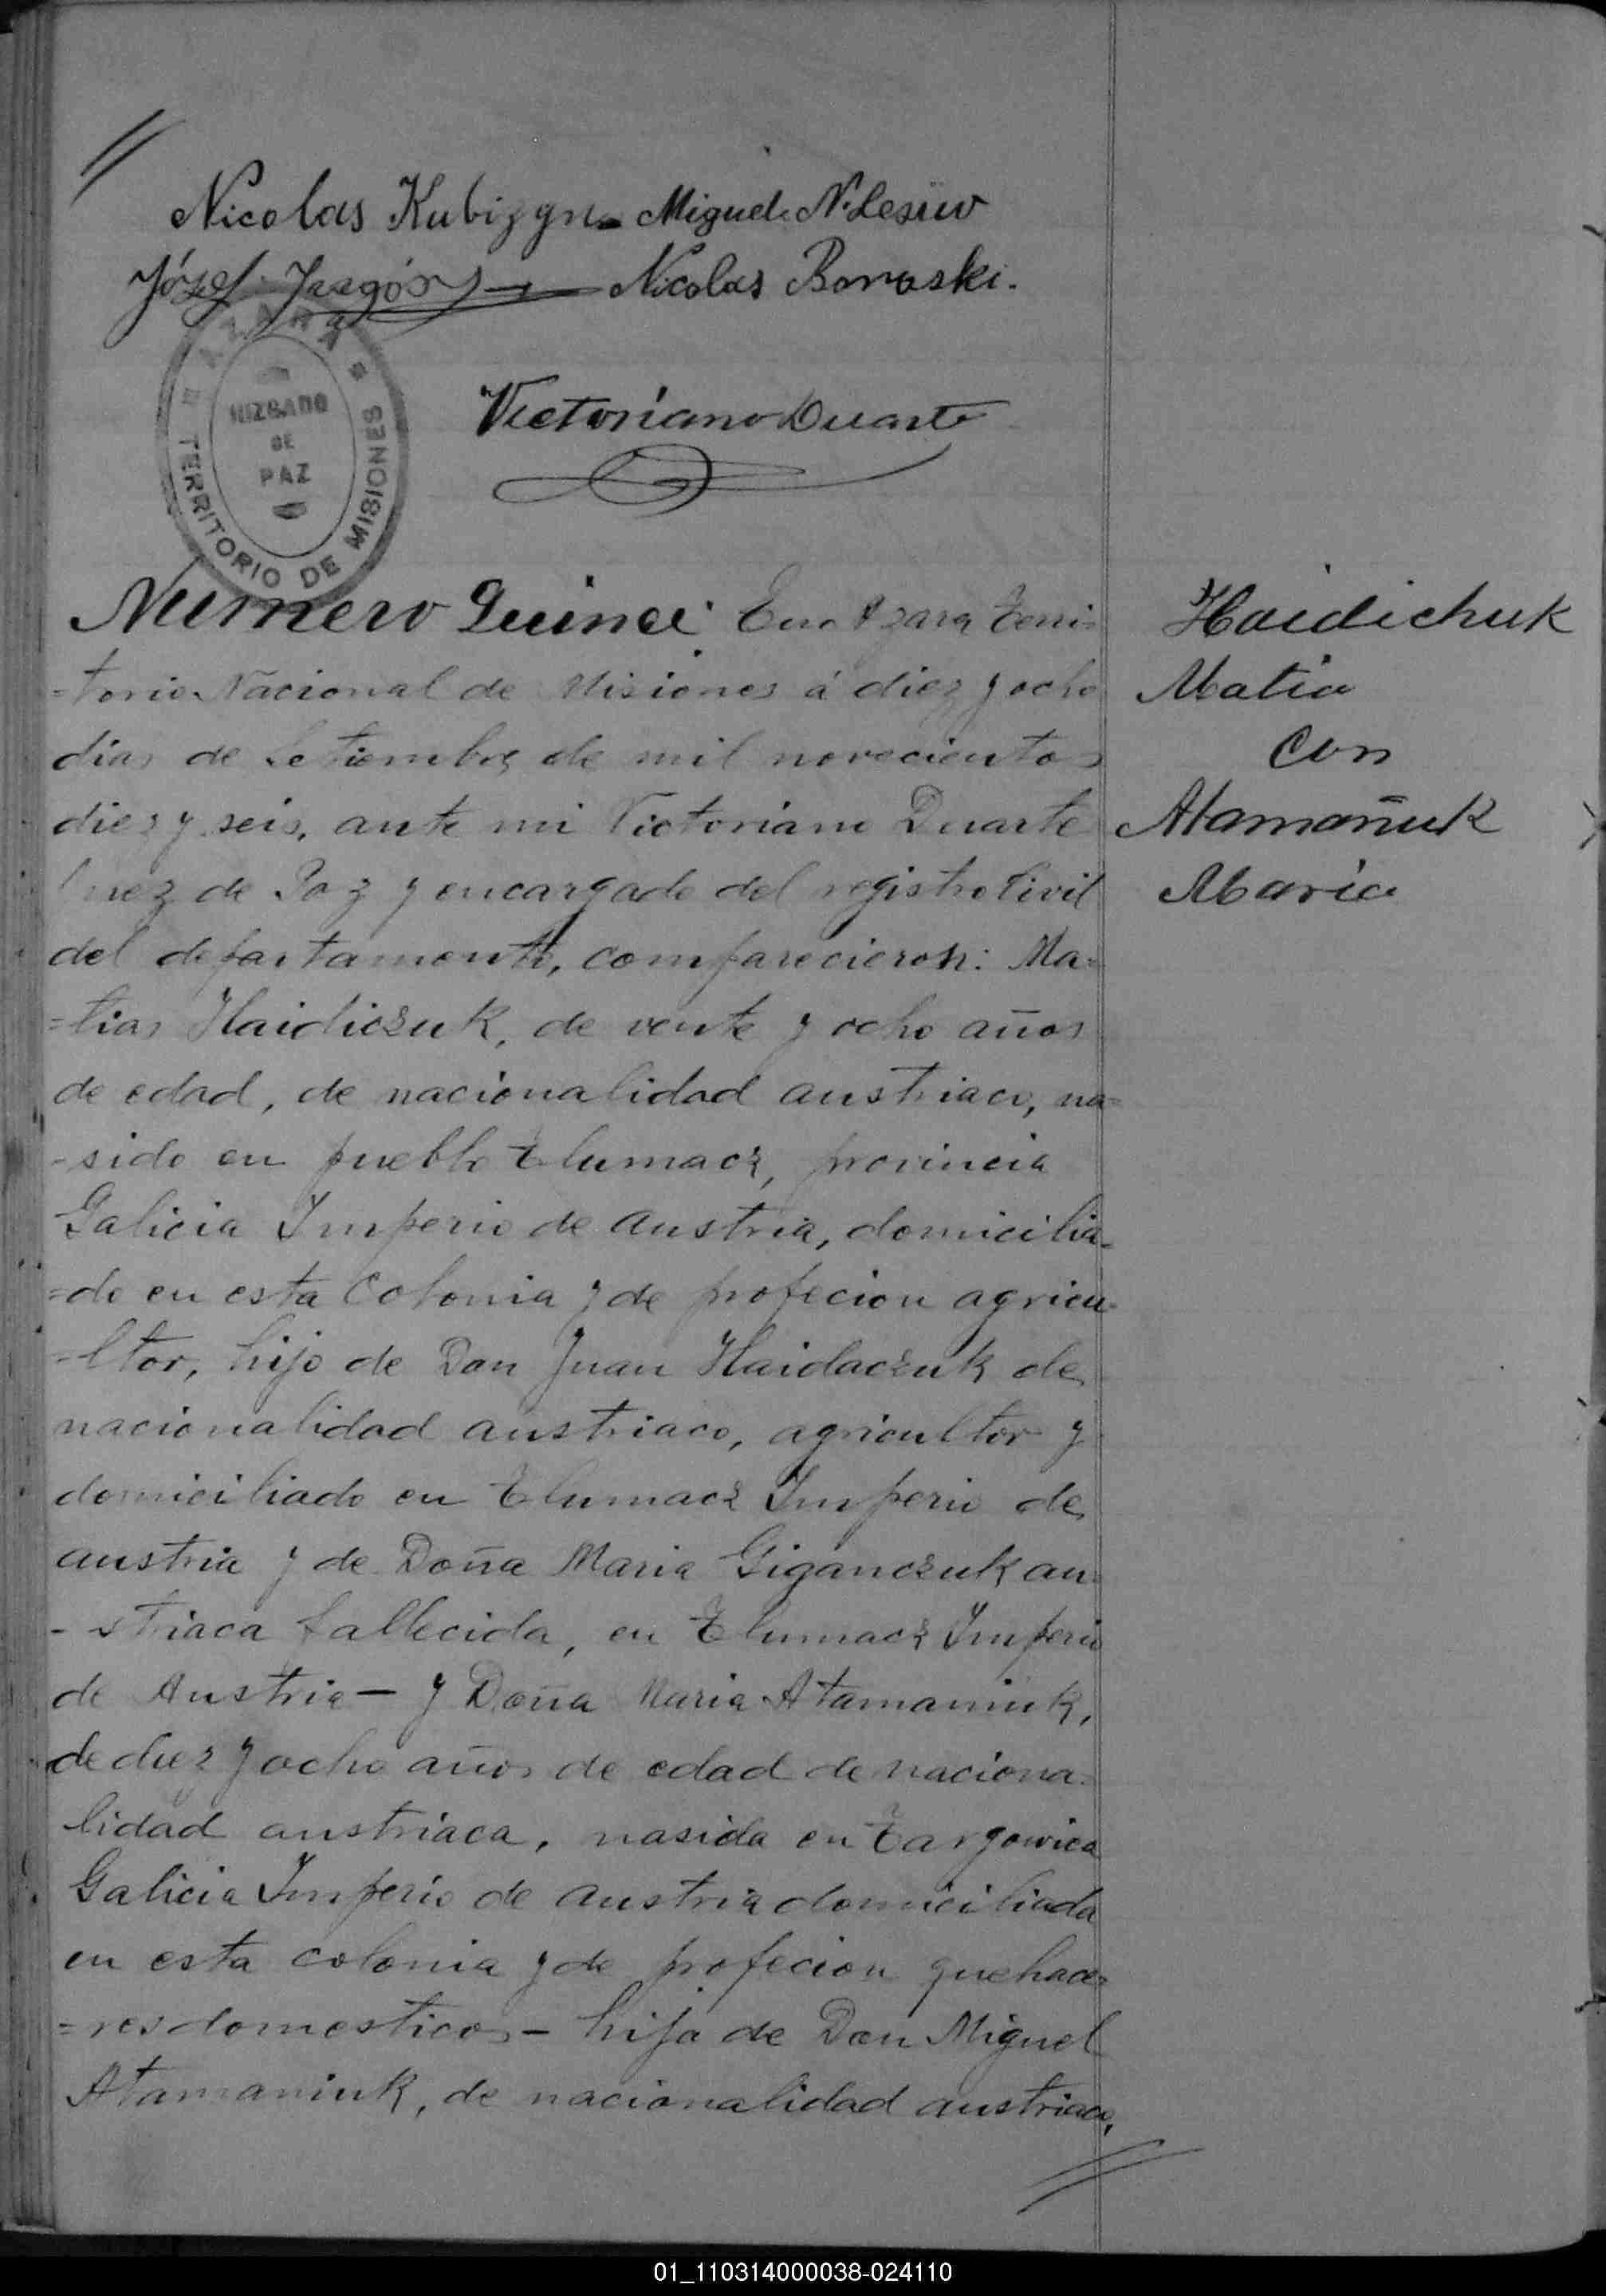 Nicolas Kubizyn Miguel N. Lesiw
Józef Nicolas Boraski.
AZARA
JUZGADO
DE
PAZ
TERRITORIO DE MISIONES
Victoriano Duarte
Numero Quince En Azara Terri=
=torio Nacional de Misiones á diez y ocho
dias de Setiembre de mil novecientos
diez y seis, ante mi Victoriano Duarte
Juez de Paz y encargado del registro Civil
del departamento, comparecieron: Ma=
=tias Haidiczuk, de vente y ocho años
de edad, de nacionalidad austriaco, na=
-sido en pueblo Tlumacz, provincia
Galicia Imperio de Austria, domicilia-
=do en esta Colonia y de profecion agricu-
=ltor, hijo de Don Juan Haidaczuk de
nacionalidad austriaco, agricultor y
domiciliado en Tlumacz Imperio de
Austria y de Doña Maria Giganczuk au=
-striaca fallecida, en Tlumacz Imperio
de Austria — y Doña Maria Atamaniuk,
de diez y ocho años de edad de naciona=
lidad austriaca, nasida en Targowica
Galicia Imperio de Austria domiciliada
en esta colonia y de profecion quehace=
=res domesticos - hija de Don Miguel
Atamaniuk, de nacionalidad austriaco,
Haidichuk
Matia
Con
Atamañuk
Maria
01_110314000038-024110